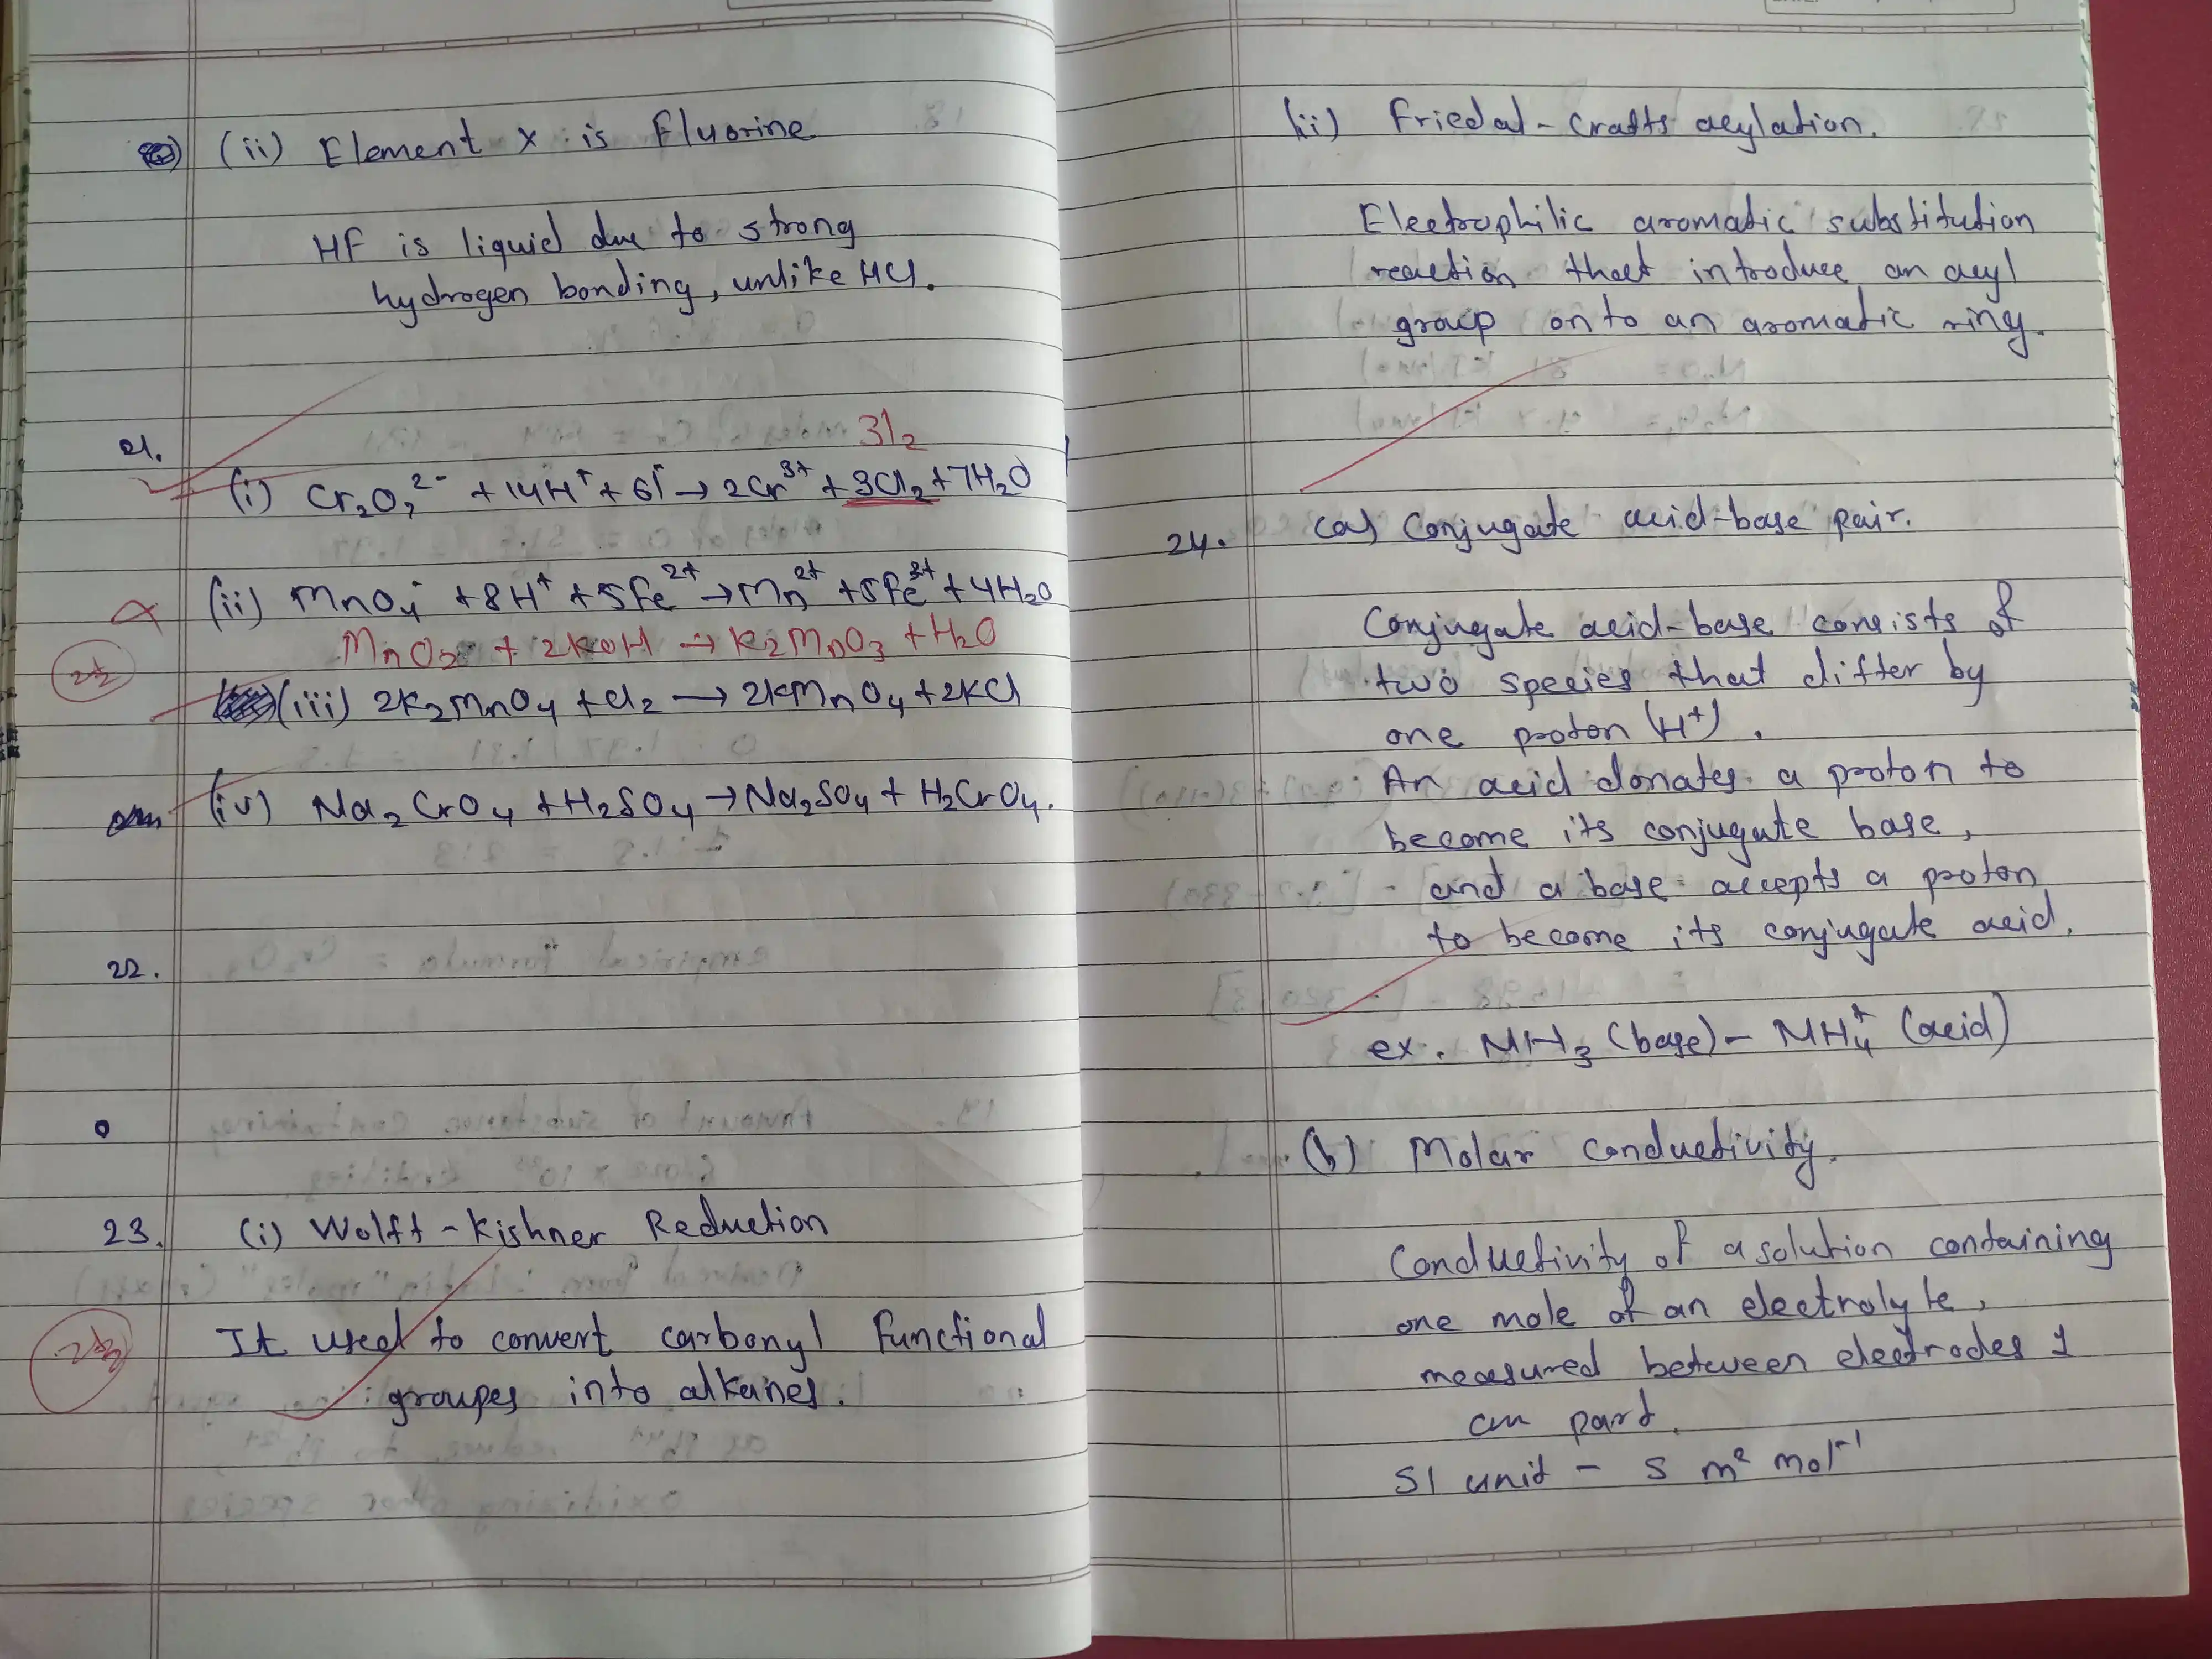 (ii) Element X is Fluorine
HF is liquid due to strong
hydrogen bonding, unlike HCl.
21.
3I₂
(i) Cr₂O₇²⁻ + 14H⁺ + 6I⁻ → 2Cr³⁺ + 3Cl₂ + 7H₂O
(ii) MnO₄⁻ + 8H⁺ + 5Fe²⁺ → Mn²⁺ + 5Fe³⁺ + 4H₂O
MnO₂ + 2KOH → K2MnO3 + H2O
2½
(iii) 2K₂MnO₄ + Cl₂ → 2KMnO₄ + 2KCl
(iv) Na₂CrO₄ + H₂SO₄ → Na₂SO₄ + H₂CrO₄.
22.
23. (i) Wolft-Kishner Reduction
It used to convert carbonyl functional
groupes into alkanes.
(ii) Friedal-Crafts acylation.
Electrophilic aromatic substitution
reaction that introduce an acyl
group on to an aromatic ring.
24. (a) Conjugate acid-base pair.
Conjugate acid-base consists of
two species that differ by
one proton (H⁺).
An acid donates a proton to
become its conjugate base,
and a base accepts a proton
to become its conjugate acid.
ex. NH₃ (base) - NH₄⁺ (acid)
(b) Molar conductivity.
Conductivity of a solution containing
one mole of an electrolyte,
measured between electrodes 1
cm part.
SI unit - S m² mol⁻¹